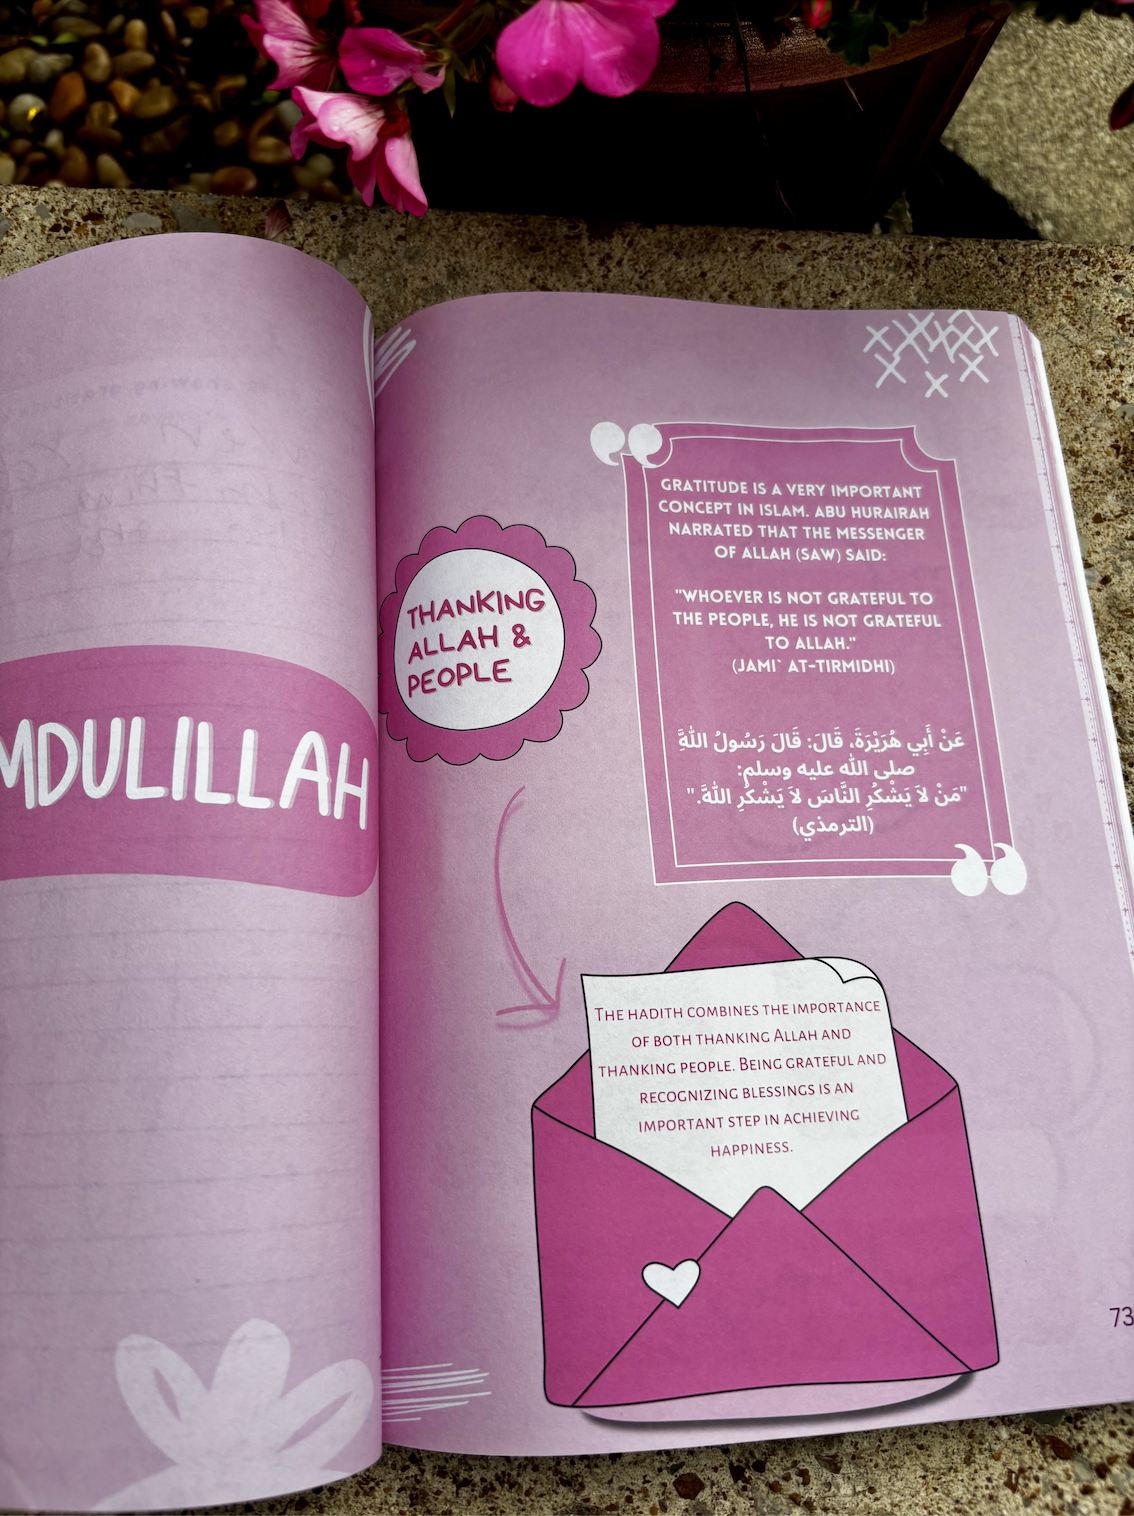 MDULILLAH
THANKING
ALLAH &
PEOPLE
GRATITUDE IS A VERY IMPORTANT
CONCEPT IN ISLAM. ABU HURAIRAH
NARRATED THAT THE MESSENGER
OF ALLAH (SAW) SAID:
"WHOEVER IS NOT GRATEFUL TO
THE PEOPLE, HE IS NOT GRATEFUL
TO ALLAH."
(JAMI` AT-TIRMIDHI)
عَنْ أَبِي هُرَيْرَةَ، قَالَ: قَالَ رَسُولُ اللَّهِ
صلى الله عليه وسلم:
"مَنْ لاَ يَشْكُرُ النَّاسَ لاَ يَشْكُرُ اللَّهَ."
(الترمذي)
THE HADITH COMBINES THE IMPORTANCE
OF BOTH THANKING ALLAH AND
THANKING PEOPLE. BEING GRATEFUL AND
RECOGNIZING BLESSINGS IS AN
IMPORTANT STEP IN ACHIEVING
HAPPINESS.
73